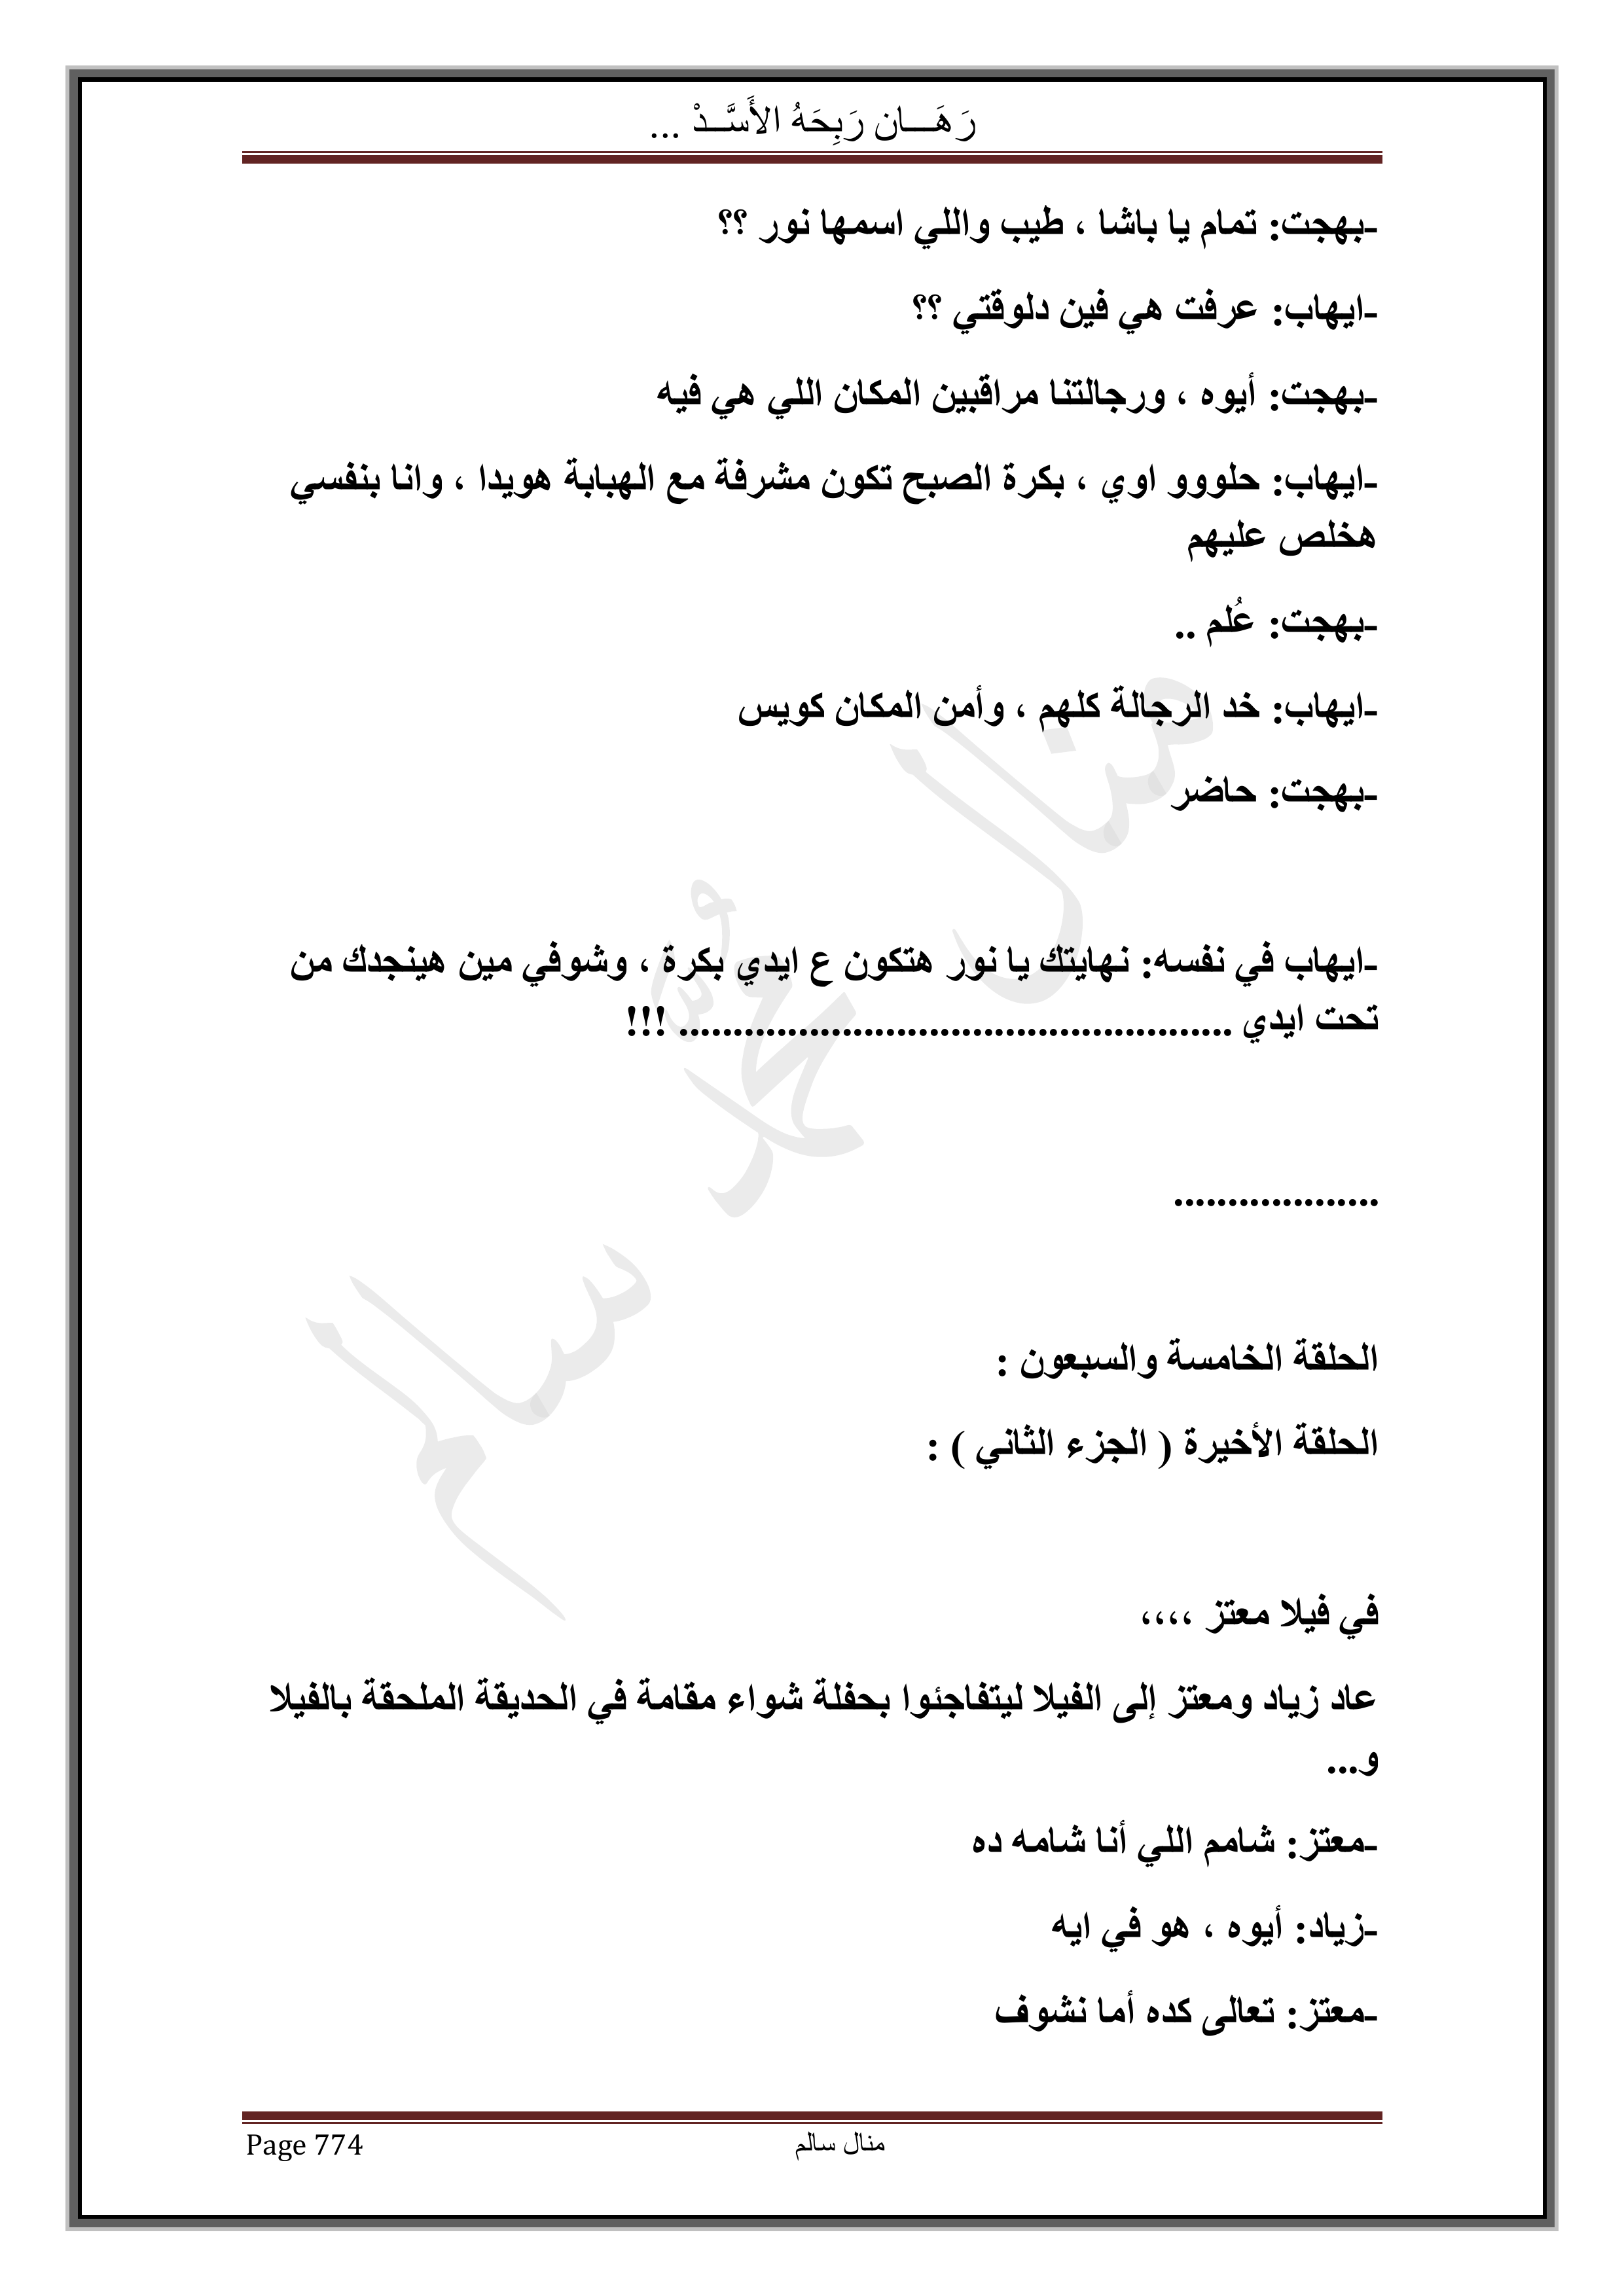 رَهَـــان رَبِحَهُ الأَسَّــدْ ...
-بهجت: تمام يا باشا ، طيب واللي اسمها نور ؟؟
-ايهاب: عرفت هي فين دلوقتي ؟؟
-بهجت: أيوه ، ورجالتنا مراقبين المكان اللي هي فيه
-ايهاب: حلووو اوي ، بكرة الصبح تكون مشرفة مع الهبابة هويدا ، وانا بنفسي
هخلص عليهم
-بهجت: عُلم ..
-ايهاب: خد الرجالة كلهم ، وأمن المكان كويس
-بهجت: حاضر
-ايهاب في نفسه: نهايتك يا نور هتكون ع ايدي بكرة ، وشوفي مين هينجدك من
تحت ايدي ................................................... !!!
...................
الحلقة الخامسة والسبعون :
الحلقة الأخيرة ( الجزء الثاني ) :
في فيلا معتز ،،،،
عاد زياد ومعتز إلى الفيلا ليتفاجئوا بحفلة شواء مقامة في الحديقة الملحقة بالفيلا
و...
-معتز: شامم اللي أنا شامه ده
-زياد: أيوه ، هو في ايه
-معتز: تعالى كده أما نشوف
منال سالم
Page 774
منال محمد سالم